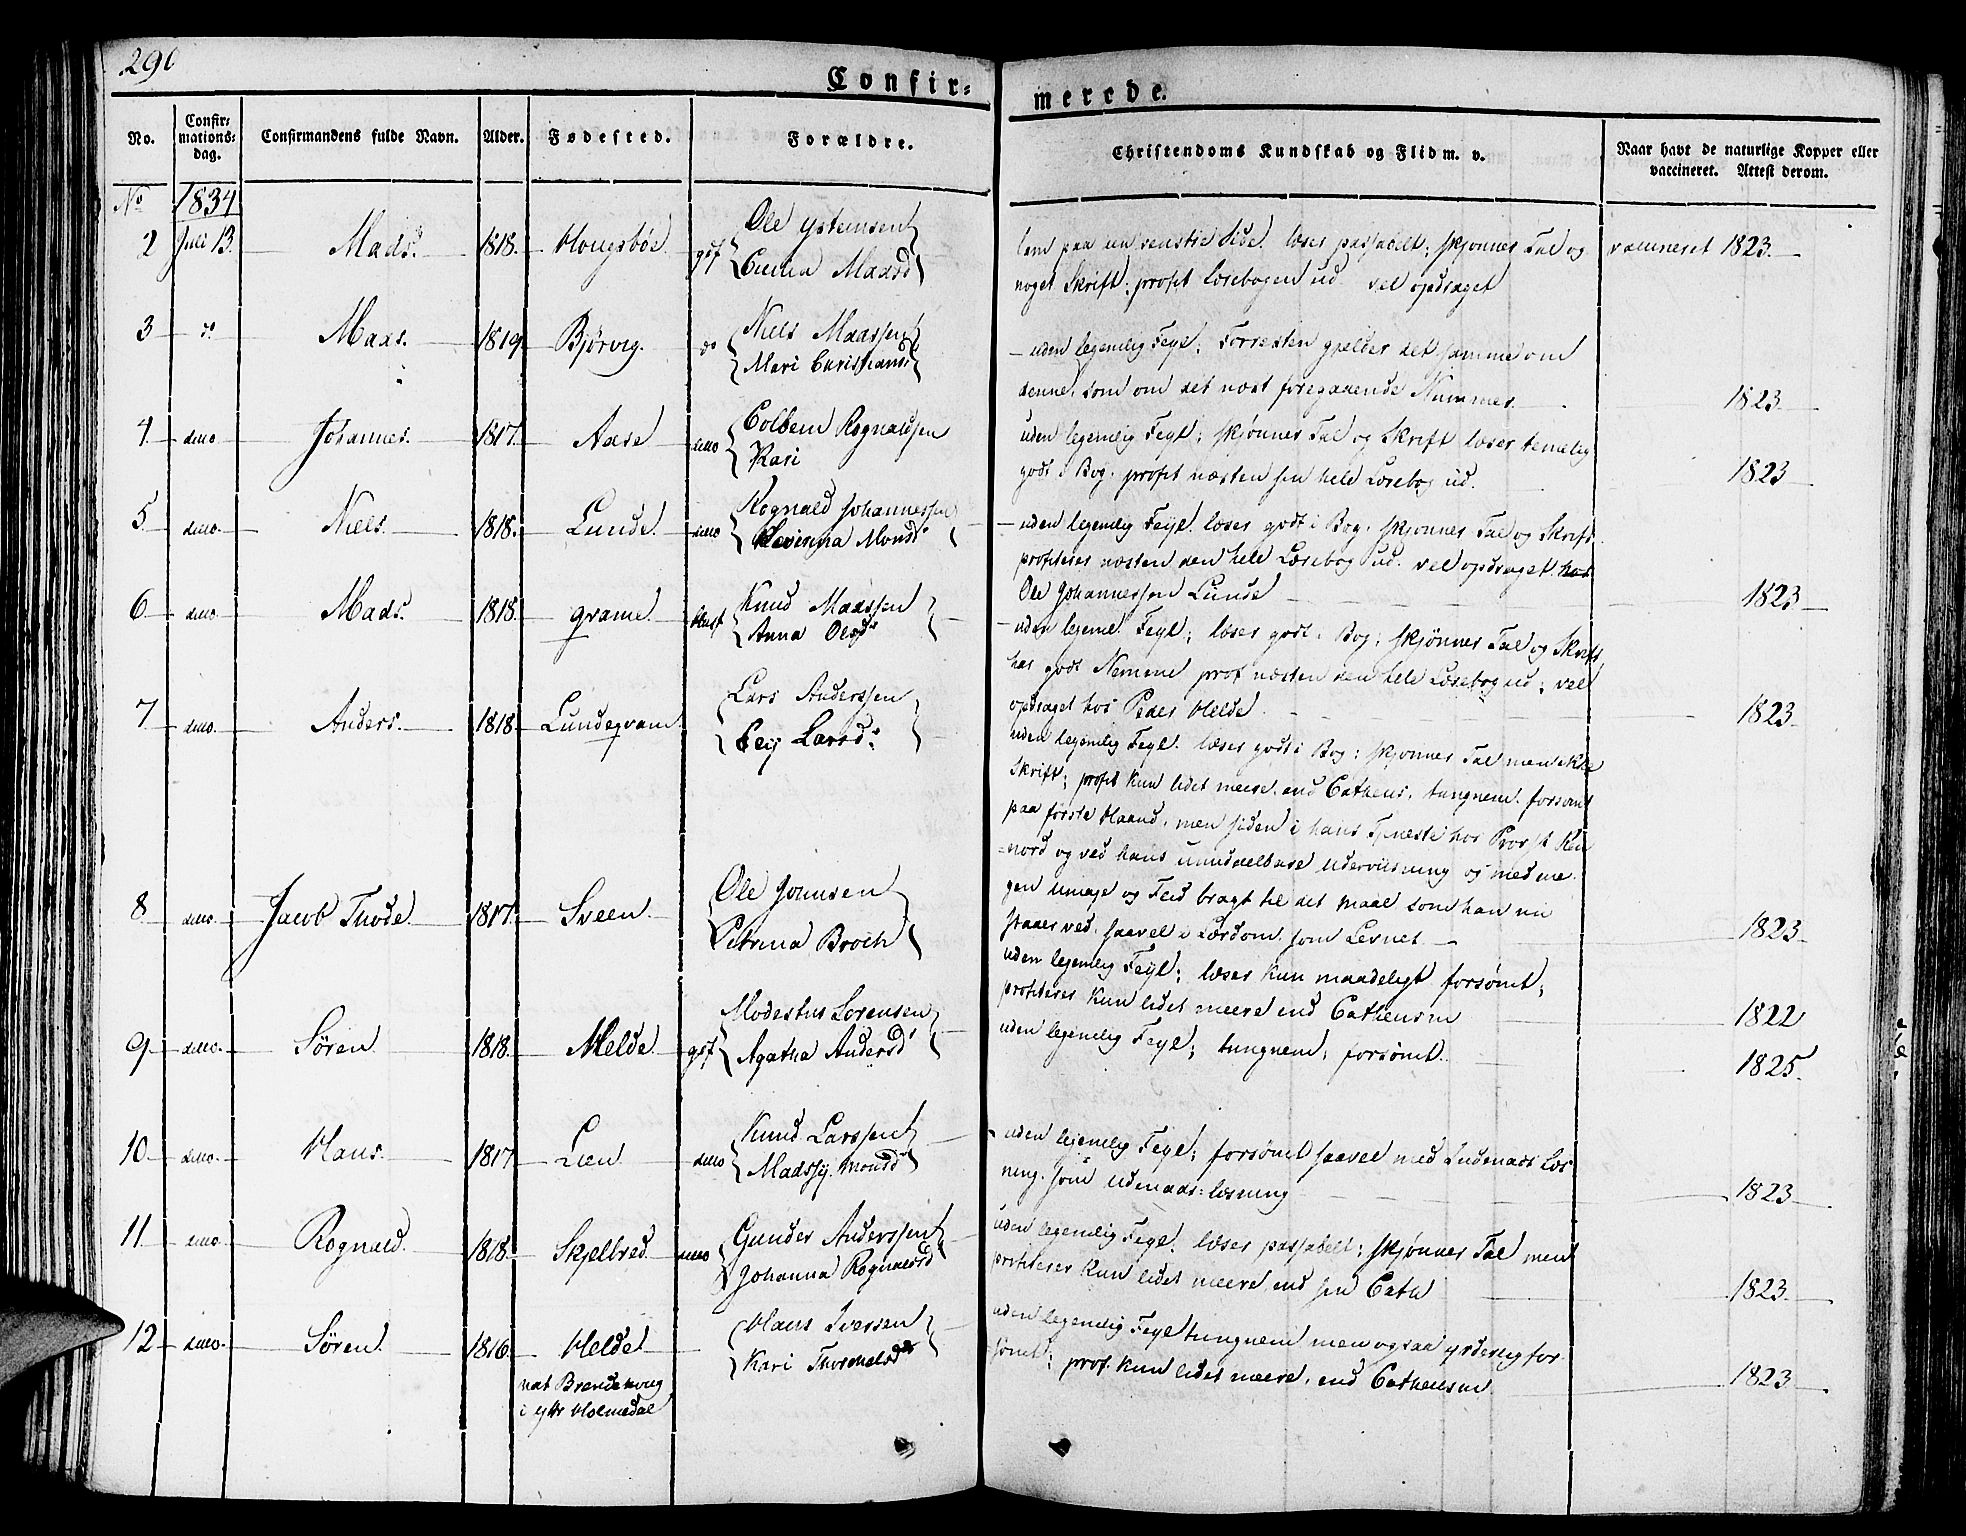 290
Confir-
merede.
No.
Confir-
mations-
dag.
Confirmandens fulde Navn.
Alder.
Fødested.
Forældre.
Christendoms Kundskab og Flid m. v.
Naar havt de naturlige Kopper eller
vaccineret. Attest derom.
No 1834
2 Juli 13. Mads. 1818. Hougsbøe gdf Ole Ysteinsen
Maasd
lam paa en venstre Side. læser passabelt; skjønner Tal og
noget Skrift; profit Læsebogen ud vel opdraget
vaccineret 1823.
3 do Maas. 1819. Bjørvig. do Niels Maassen
Mari Christiansd
uden legemlig Feyl; Forresten gjelder det samme om
denne, som om det næst foregaaende Nummer.
1823.
4 ditto Johannes. 1817. Aase ditto Colbein Rognaldsen
Kari
uden legemlig Feyl; skjønner Tal og Skrift læser temelig
godt i Bog. profit næsten sin hele Læsebog ud.
1823
5 ditto Niels. 1818. Lunde ditto Rognald Johannessen
Monsd
uden legemlig Feyl. læser godt i Bog. skjønner Tal og Skrift
profiterer næsten den hele Læsebog ud. vel opdraget hos
Ole Johannessen Lunde
1823
6 ditto Mads. 1818. grame Hust Knud Maassen
Anna Olsd.
uden legeml. Feyl; læser godt i Bog; skjønner Tal og Skrift
har godt Nemme prof næsten den hele Læsebog ud; vel
opdraget hos Peder Helde
1823
7 ditto Anders. 1818. Lundegram Lars Anderssen
Larsd.
uden legemlig Feyl. læser godt i Bog; skjønner Tal men ikke
Skrift; profit kun lidet meere end Cathens. tungnem. forsømt
paa første Haand, men siden i hans Tjeneste hos Provst Ren
nord og ved hans umiddelbare Underviisning og med me
gen Umage og Flid bragt til det Maal som han nu
staaer ved, saavel i Lærdom som Levnet
1823
8 ditto Jacob Thode. 1817. Sveen. Ole Johnsen
Petrina Broch
uden legemlig Feyl; læser kun maadeligt forsømt;
profiterer kun lidet meere end Cathensm
1822
9 ditto Søren. 1818. Melde. gdf Modestus Sørensen
Agatha Andersd
uden legemlig Feyl; tungnem; forsømt.
1825.
10 ditto Hans. 1817 Lien ditto Knud Larssen
Madssy. Monsd
uden legemlig Feyl; forsømt saavel med Indenads Læs
ning. som udenads-læsning
1823
11 ditto Rognald. 1818. Skjelbred ditto Gunder Anderssen
Johanna Rognaldsd
uden legemlig Feyl; læser passabelt; skjønner Tal men
profiterer kun lidet meere end sin Cath
1823
12 ditto Søren 1816. Helde Hans Iversen
Kari Thorkelsdr
nat Brendehoug
i ytr Holmedal
uden legemlig Feyl tungnem men ogsaa yderlig for-
sømt; prof. kun lidet meere, end Cathensm
1823